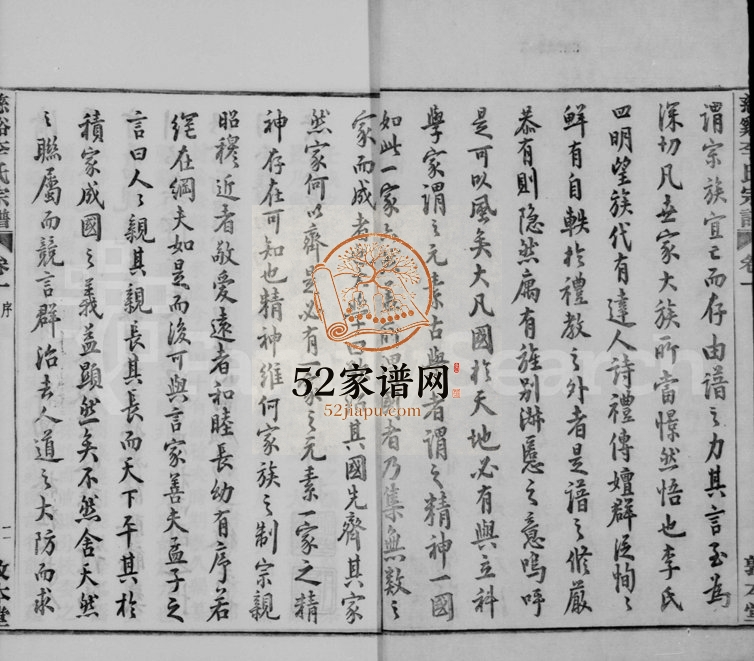 謂宗族宜亡而存由譜之力其言至為
深切凡世家大族所當憬然悟也李氏
四明望族代有達人詩禮傳嬗群從恂々
鮮有自軼於禮教之外者是譜之修嚴
恭有則隐然寓有旌别淑慝之意嗚呼
是可以風矣大凡國於天地必有與立科
學家謂之元素古與者謂之精神一國
如此一家 者乃集無數之
家而成者 其國先齊其家
然家何以齊是必有一家之元素一家之精
神存在可知也精神維何家族之制宗親
昭穆近者敬愛遠者和睦長幼有序若
綱在綱夫如是而後可與言家善夫孟子之
言曰人人親其親長其長而天下平其於
積家成國之義益顯然矣不然舍天然
之聯属而競言群治去人道之大防而求
李氏宗譜
卷一
序
敦本堂
52家谱网
52jiapu.com